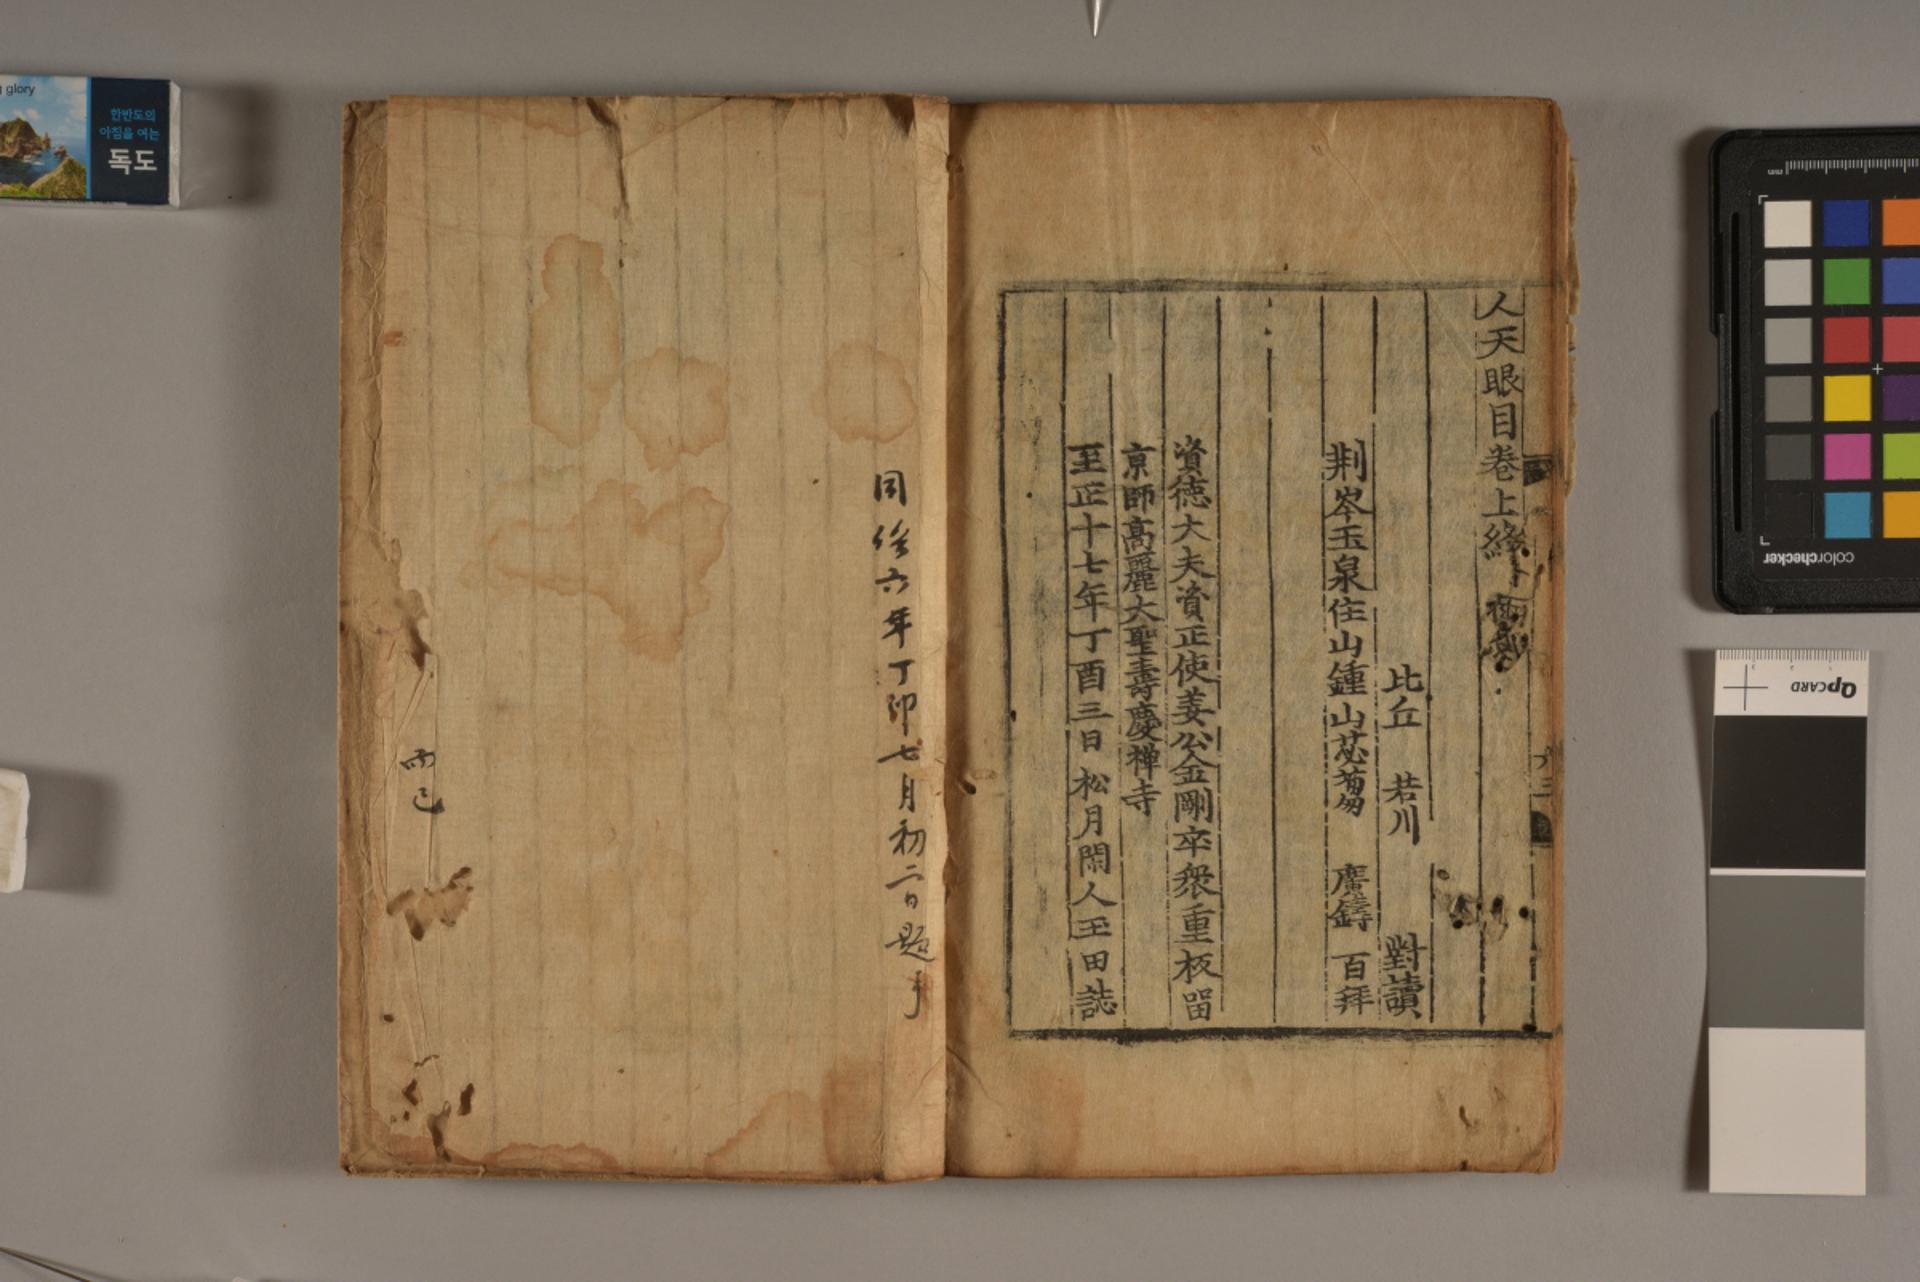 人天眼目卷上終
比丘 若川 對讀
荆岑玉泉住山鍾山苾蒭 廣鑄 百拜
資德大夫資正使姜公金剛卒衆重板留
京師高麗大聖壽慶禅寺
至正十七年丁酉三日松月閑人玉田誌
同治六年丁卯七月初二日題
g glory
한반도의
아침을 여는
독도
mm
colorchecker
Qp CARD